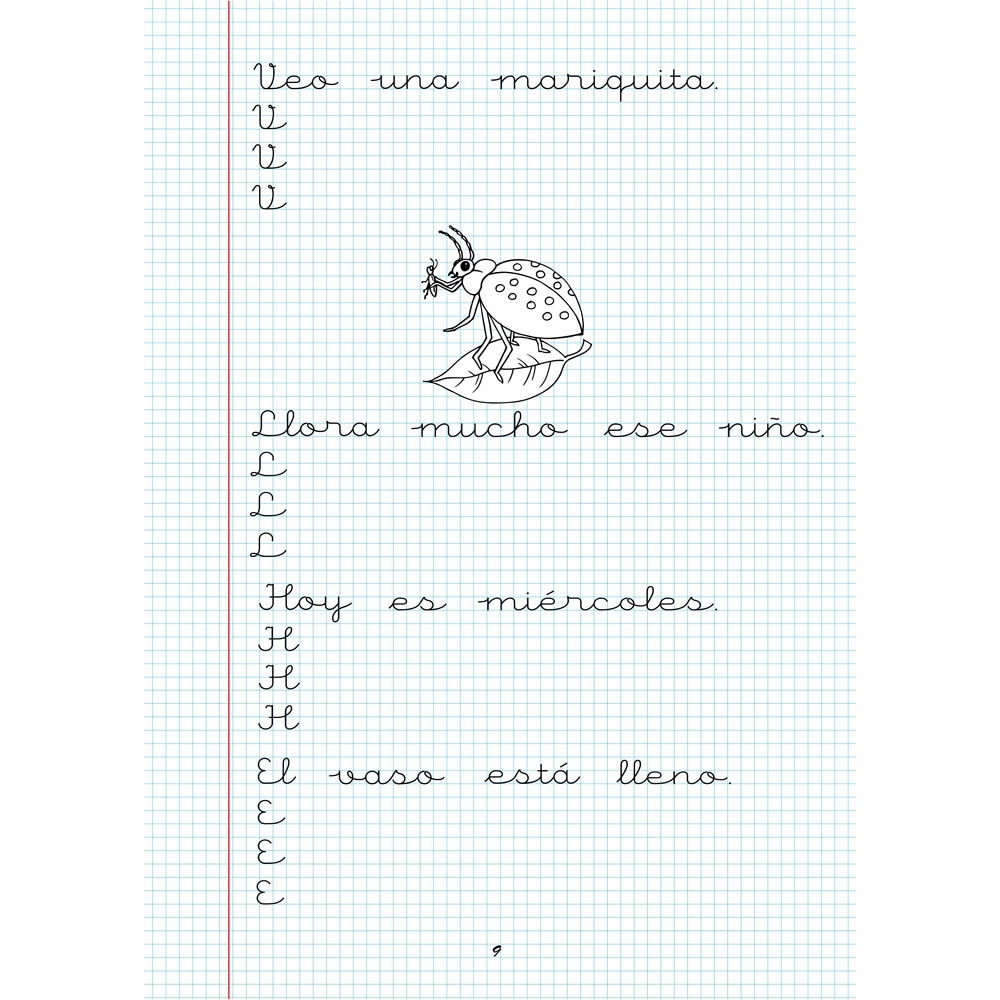 Veo una mariquita.
V
V
V
Llora mucho ese niño.
L
L
L
Hoy es miércoles.
H
H
H
El vaso está lleno.
E
E
E
9